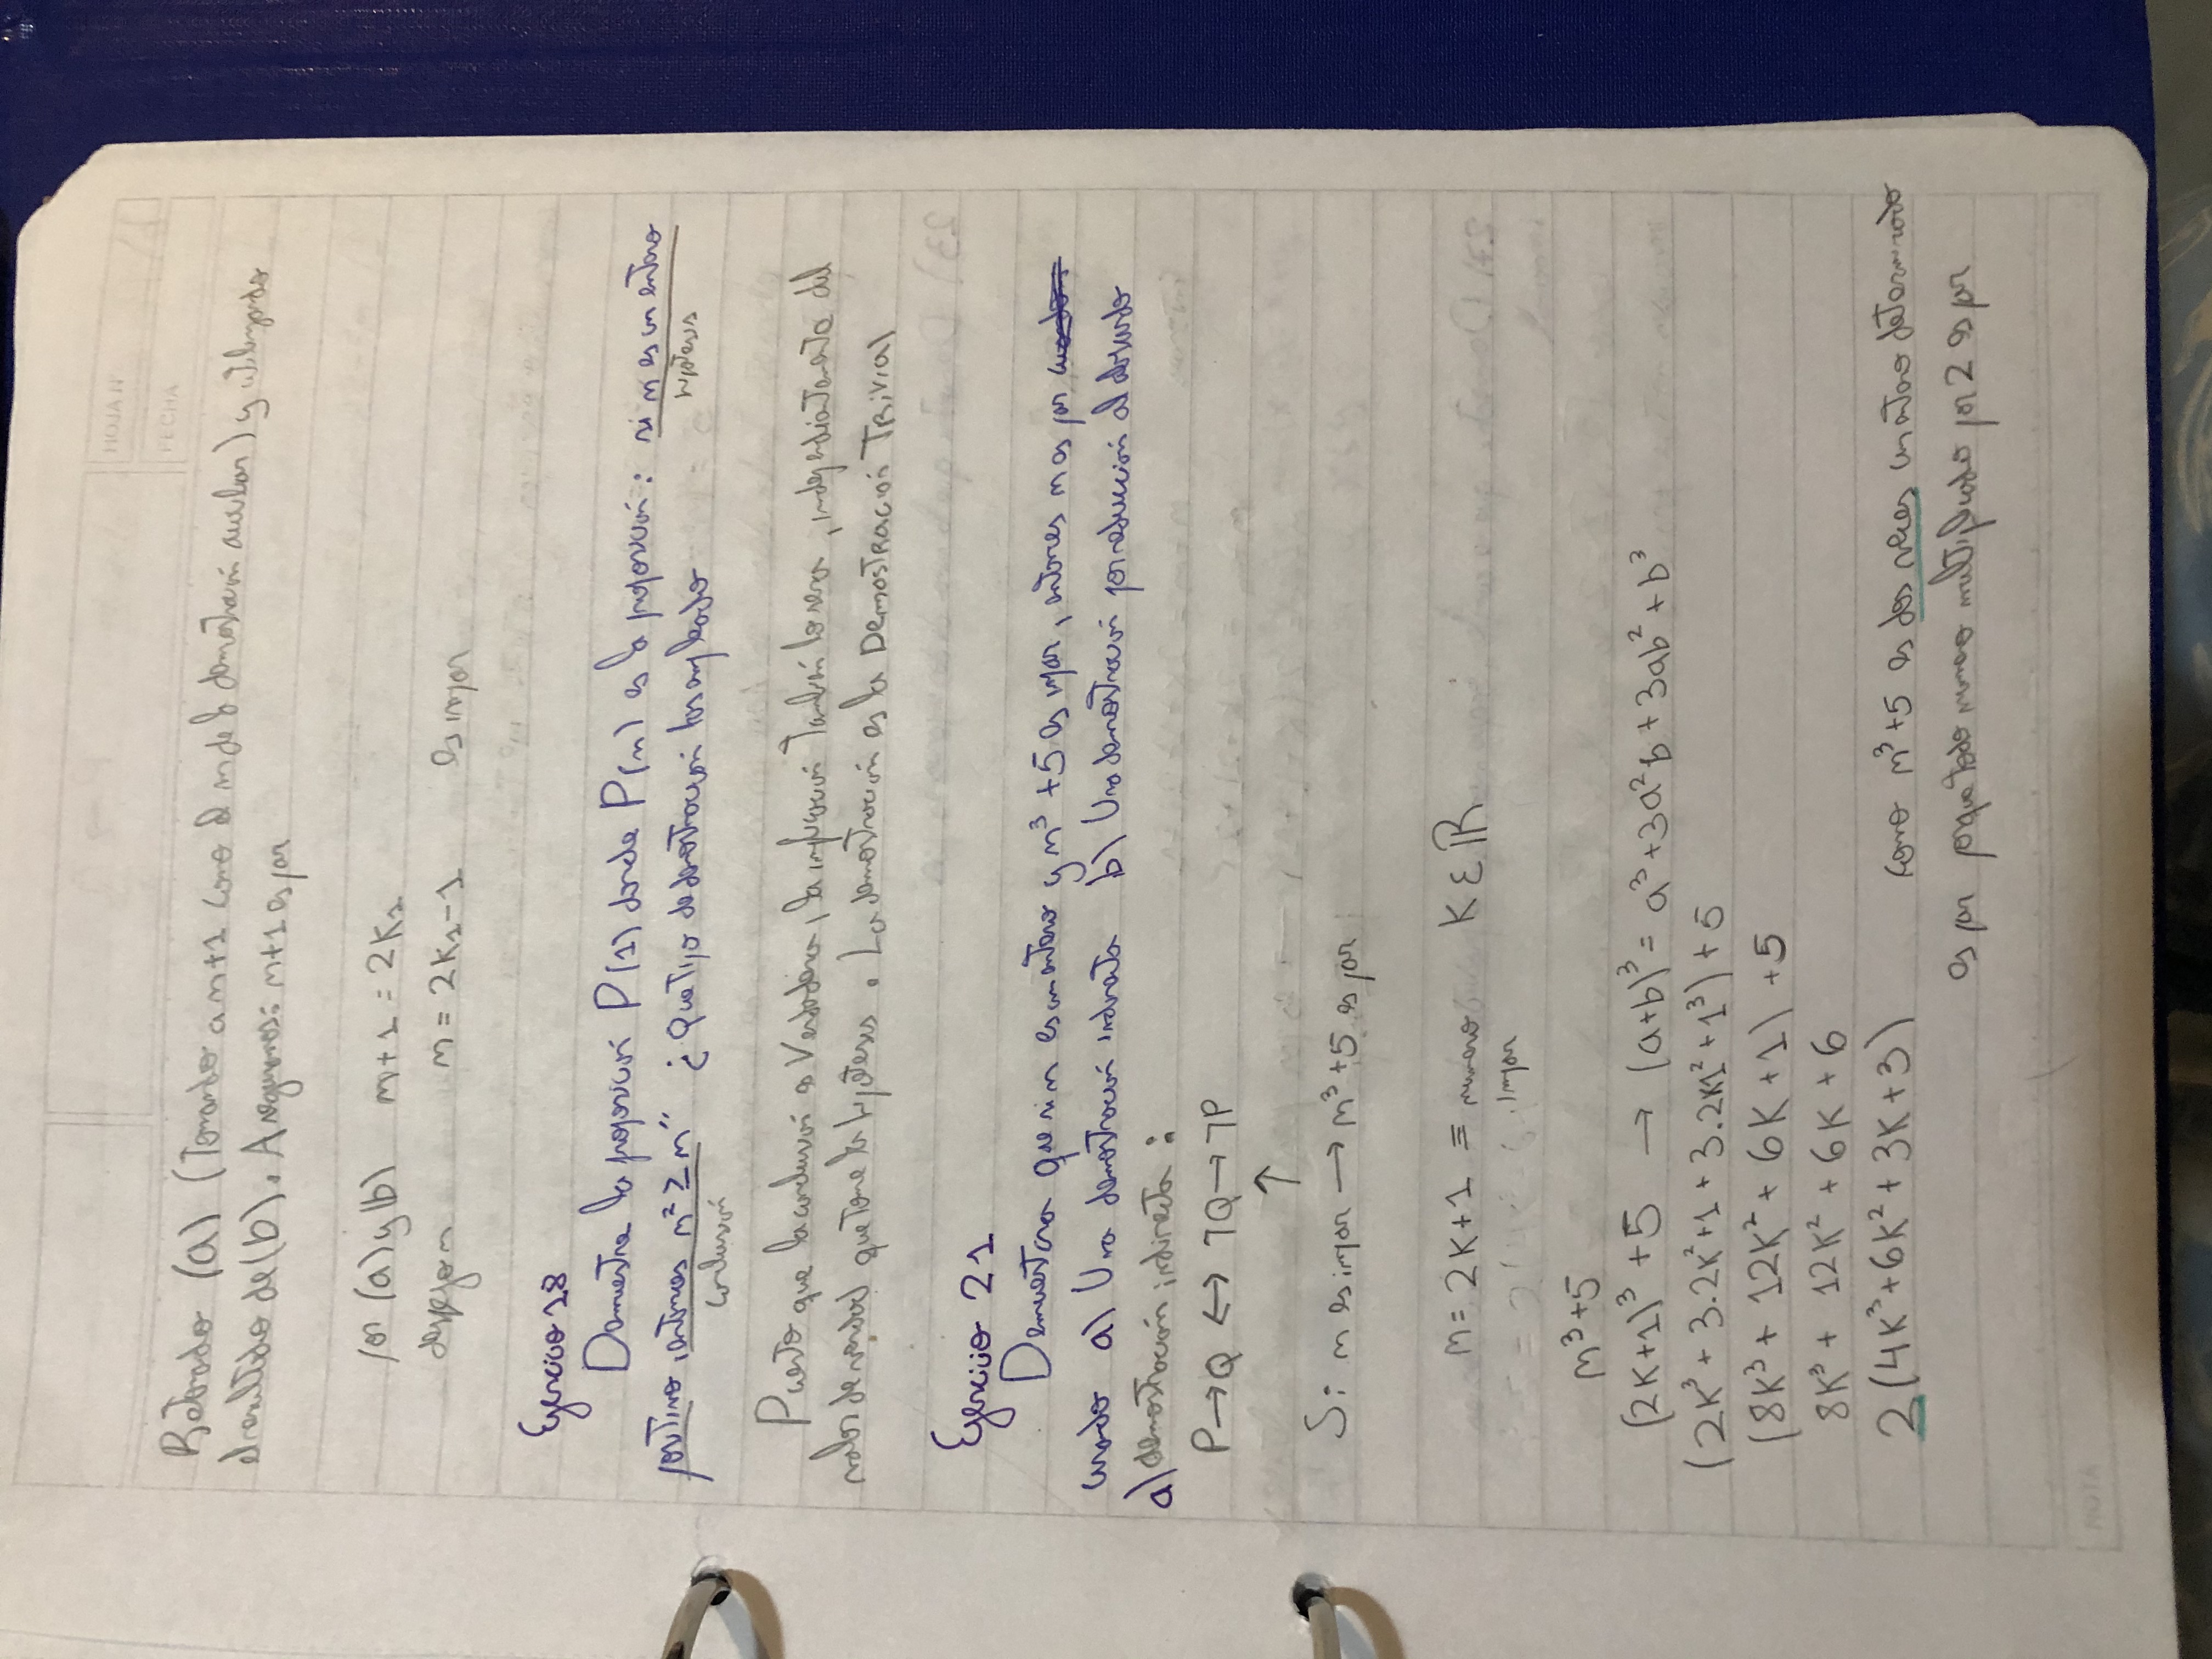 HOJA N°
FECHA
Retomado (a) (Tomando a n+1 como el n de la demostración auxiliar) y utilizando
el resultado de (b). Aseguramos: n+1 es par
por (a) y (b) n+1 = 2K₁
despejo n n = 2K₁-1 es impar
Ejercicio 18
Demuestra la proposición P(1) donde P(n) es la proposición: si n es un entero
positivo, entonces n² ≥ n" ¿Que tipo de demostración has empleado
hipotesis
conclusión
Puesto que la conclusión es Verdadera, la implicación también lo sera, independientemente del
valor de verdad que tome la hipotesis. La demostración es la DEMOSTRACIÓN TRIVIAL
Ejercicio 21
Demuestra que si n es un entero y n³+5 es impar, entonces n es par
usando a) Una demostración indirecta b) Una demostración por reducción al absurdo
a) demostración indirecta:
P→Q ↔ ¬Q→¬P
↑
Si n es impar → n³+5 es par
n = 2K+1 ≡ numero K ε ℝ
impar
n³+5
(2K+1)³ + 5 → (a+b)³ = a³+3a²b+3ab²+b³
(2K³ + 3.2K²+1 + 3.2K1² + 1³) + 5
(8K³ + 12K² + 6K + 1) + 5
8K³ + 12K² + 6K + 6
2(4K³+6K²+3K+3) como n³+5 es dos veces un entero determinado
es par porque todo numero multiplicado por 2 es par